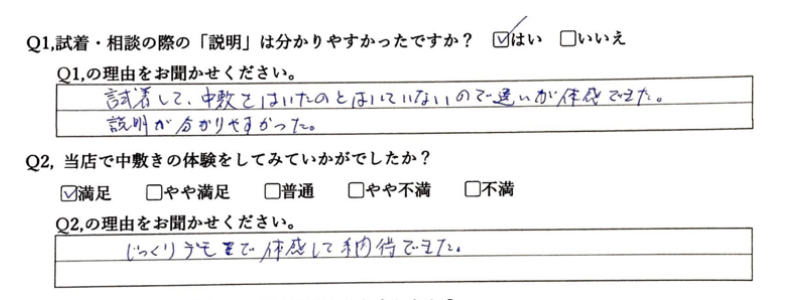 Q1,試着・相談の際の「説明」は分かりやすかったですか? ☑はい ☐いいえ
Q1,の理由をお聞かせください。
試着して、中敷をはいたのとはいていないので違いが体感できた。
説明が分かりやすかった。
Q2, 当店で中敷きの体験をしてみていかがでしたか?
☑満足 ☐やや満足 ☐普通 ☐やや不満 ☐不満
Q2,の理由をお聞かせください。
じっくりデモまで体感して納得できた。